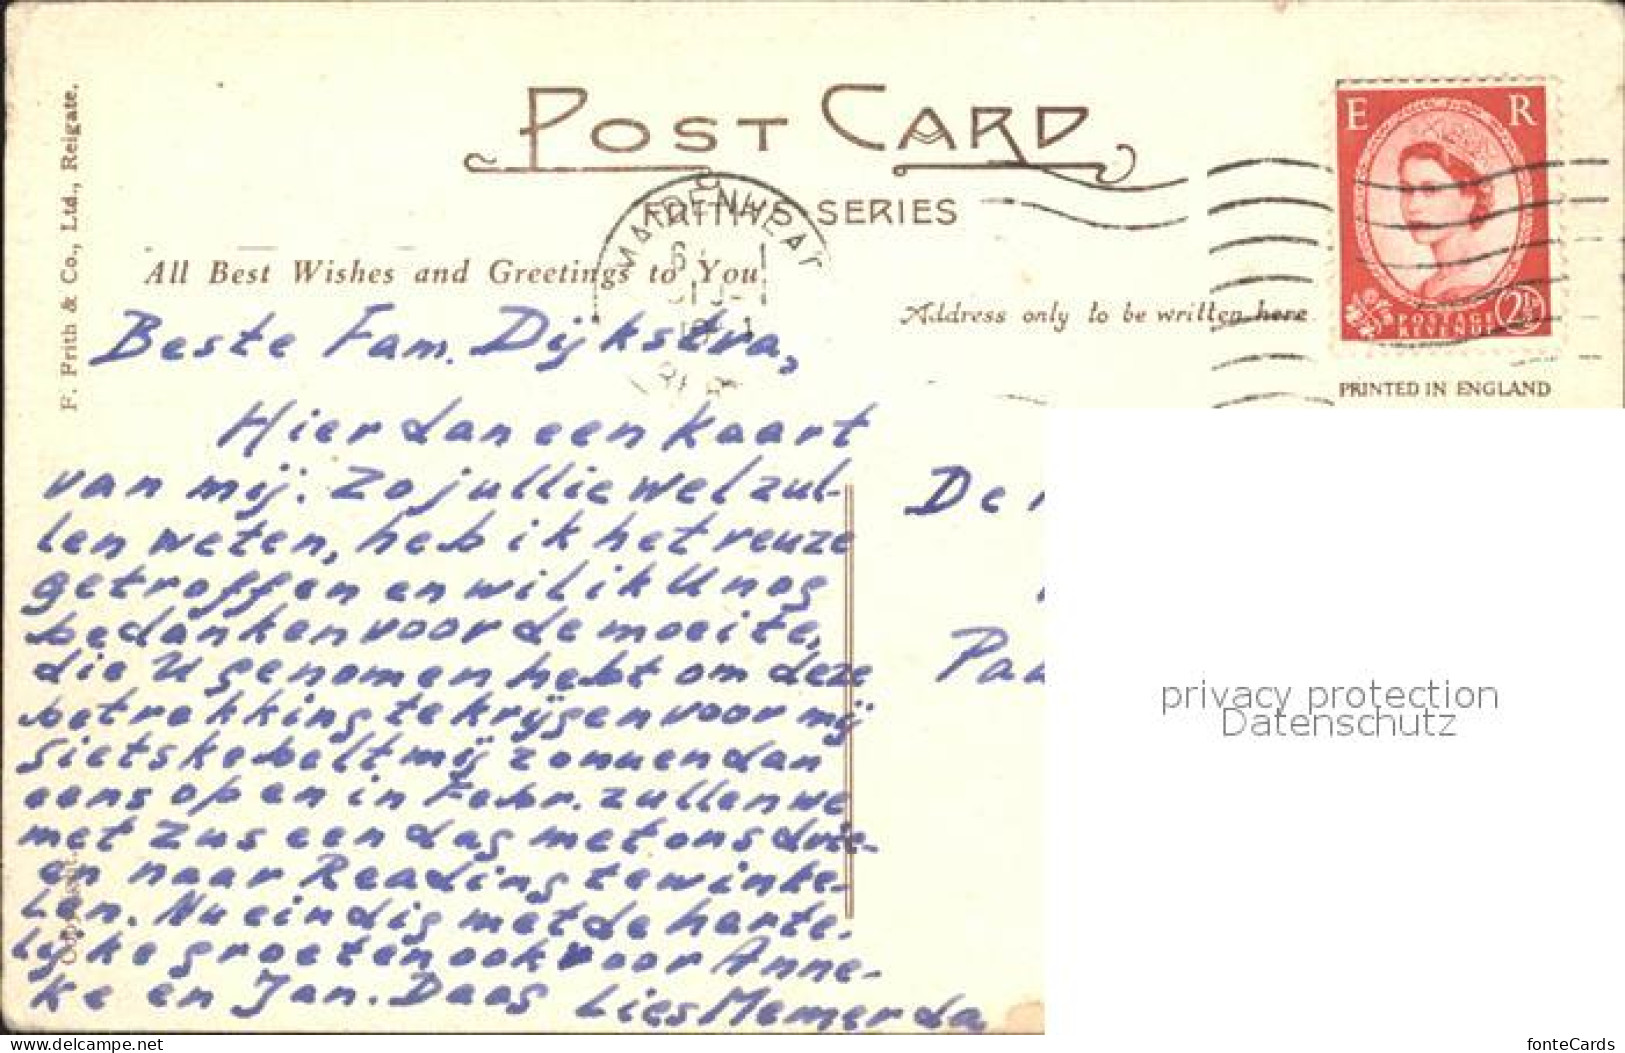 POST CARD
FRITH'S SERIES
F. Frith & Co., Ltd., Reigate.
MAIDENHEAD
E R
POSTAGE
REVENUE
2½D
All Best Wishes and Greetings to You
Address only to be written here
PRINTED IN ENGLAND
Beste Fam. Dijkstra,
Hier dan een kaart
van mij. Zo jullie wel zul-
len weten, heb ik het reuze
getroffen en wil ik U nog
bedanken voor de moeite,
die U genomen hebt om deze
betrekking te krijgen voor mij
Sietske belt mij zo nu en dan
eens op en in Febr. zullen we
met Zus een dag met ons drie-
en naar Reading te winke-
len. Nu eindig met de harte-
lijke groeten ook voor Anne-
ke en Jan. Daag Lies Memerda
De
Pau
privacy protection
Datenschutz
https://www.ansichtskarten-center.de/
fonteCards